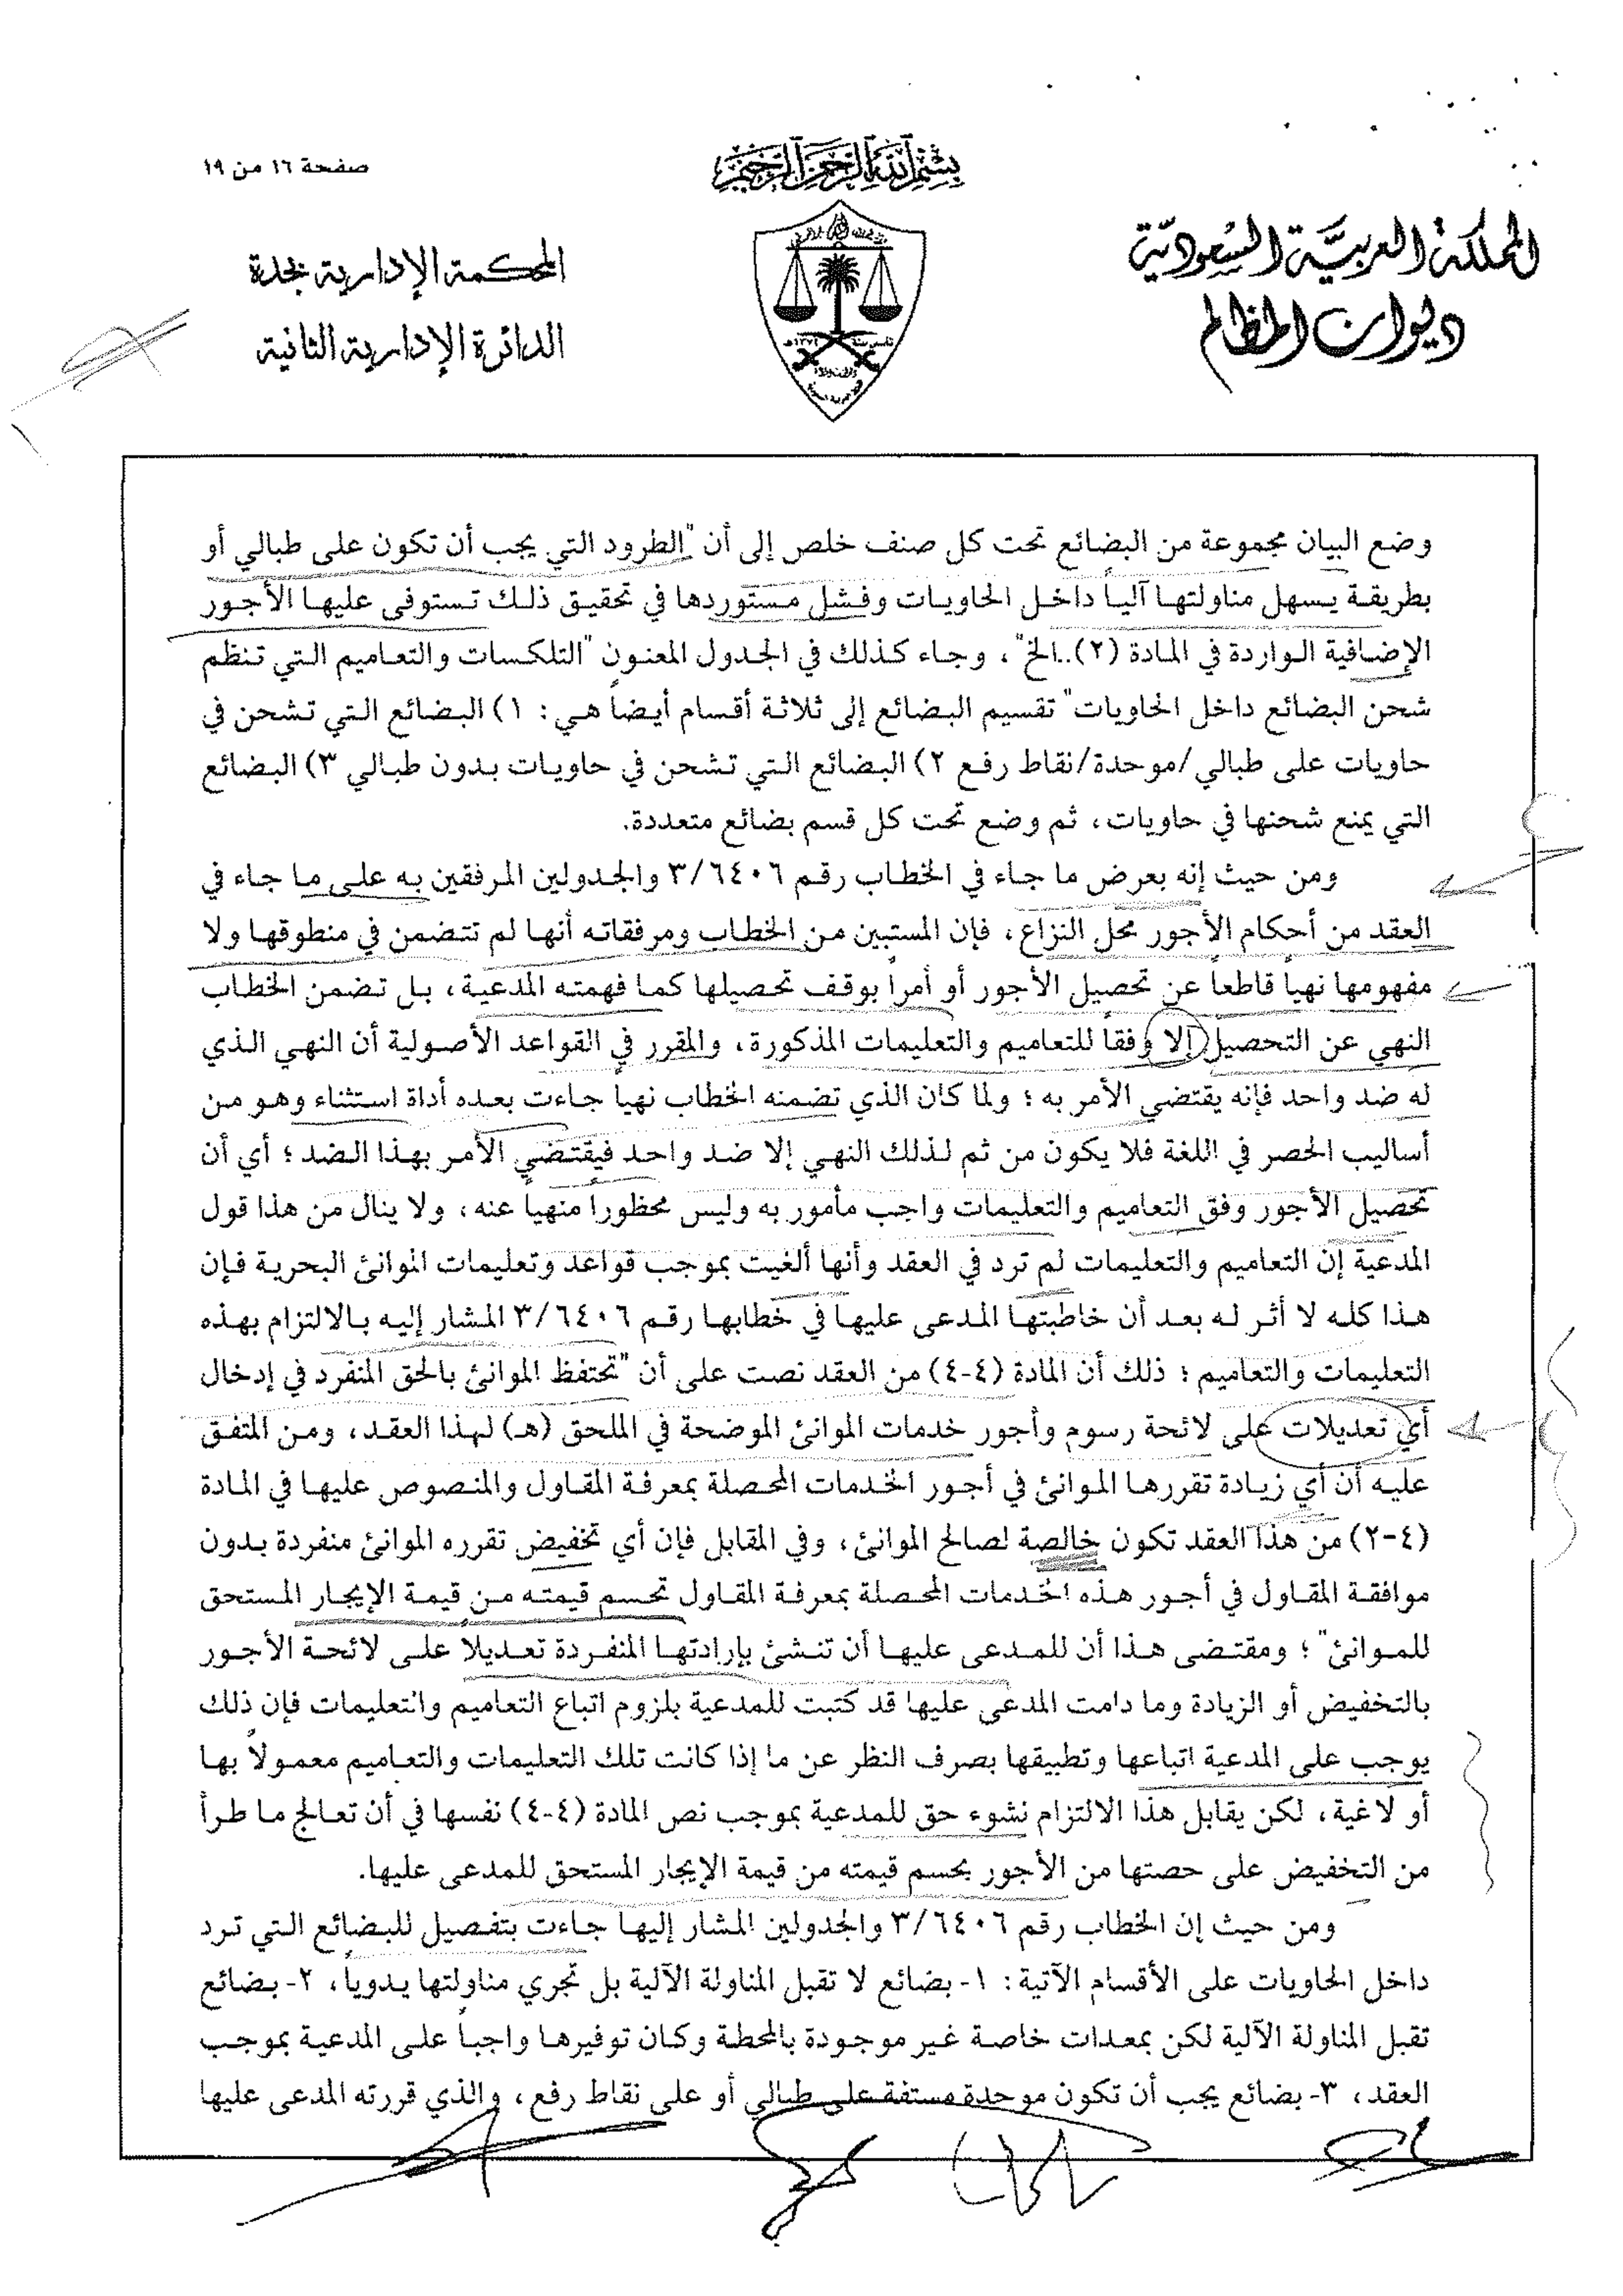 صفحة ١٦ من ١٩
بسم الله الرحمن الرحيم
المملكة العربية السعودية
ديوان المظالم
المحكمة الإدارية بجدة
الدائرة الإدارية الثانية
وضع البيان مجموعة من البضائع تحت كل صنف خلص إلى أن "الطرود التي يجب أن تكون على طبالي أو
بطريقة يسهل مناولتها آلياً داخل الحاويات وفشل مستوردها في تحقيق ذلك تستوفى عليها الأجور
الإضافية الواردة في المادة (٢)..الخ"، وجاء كذلك في الجدول المعنون "التلكسات والتعاميم التي تنظم
شحن البضائع داخل الحاويات" تقسيم البضائع إلى ثلاثة أقسام أيضاً هي: ١) البضائع التي تشحن في
حاويات على طبالي/موحدة/نقاط رفع ٢) البضائع التي تشحن في حاويات بدون طبالي ٣) البضائع
التي يمنع شحنها في حاويات، ثم وضع تحت كل قسم بضائع متعددة.
ومن حيث إنه بعرض ما جاء في الخطاب رقم ٣/٦٤٠٦ والجدولين المرفقين به على ما جاء في
العقد من أحكام الأجور محل النزاع، فإن المستبين من الخطاب ومرفقاته أنها لم تتضمن في منطوقها ولا
مفهومها نهياً قاطعاً عن تحصيل الأجور أو أمراً بوقف تحصيلها كما فهمته المدعية، بل تضمن الخطاب
النهي عن التحصيل إلا وفقاً للتعاميم والتعليمات المذكورة، والمقرر في القواعد الأصولية أن النهي الذي
له ضد واحد فإنه يقتضي الأمر به ؛ ولما كان الذي تضمنه الخطاب نهياً جاءت بعده أداة استثناء وهو من
أساليب الحصر في اللغة فلا يكون من ثم لذلك النهي إلا ضد واحد فيقتضي الأمر بهذا الضد ؛ أي أن
تحصيل الأجور وفق التعاميم والتعليمات واجب مأمور به وليس محظوراً منهياً عنه، ولا ينال من هذا قول
المدعية إن التعاميم والتعليمات لم ترد في العقد وأنها ألغيت بموجب قواعد وتعليمات الموانئ البحرية فإن
هذا كله لا أثر له بعد أن خاطبتها المدعى عليها في خطابها رقم ٣/٦٤٠٦ المشار إليه بالالتزام بهذه
التعليمات والتعاميم ؛ ذلك أن المادة (٤-٤) من العقد نصت على أن "تحتفظ الموانئ بالحق المنفرد في إدخال
أي تعديلات على لائحة رسوم وأجور خدمات الموانئ الموضحة في الملحق (هـ) لهذا العقد، ومن المتفق
عليه أن أي زيادة تقررها الموانئ في أجور الخدمات المحصلة بمعرفة المقاول والمنصوص عليها في المادة
(٤-٢) من هذا العقد تكون خالصة لصالح الموانئ، وفي المقابل فإن أي تخفيض تقرره الموانئ منفردة بدون
موافقة المقاول في أجور هذه الخدمات المحصلة بمعرفة المقاول تحسم قيمته من قيمة الإيجار المستحق
للموانئ" ؛ ومقتضى هذا أن للمدعى عليها أن تنشئ بإرادتها المنفردة تعديلاً على لائحة الأجور
بالتخفيض أو الزيادة وما دامت المدعى عليها قد كتبت للمدعية بلزوم اتباع التعاميم والتعليمات فإن ذلك
يوجب على المدعية اتباعها وتطبيقها بصرف النظر عن ما إذا كانت تلك التعليمات والتعاميم معمولاً بها
أو لاغية، لكن يقابل هذا الالتزام نشوء حق للمدعية بموجب نص المادة (٤-٤) نفسها في أن تعالج ما طرأ
من التخفيض على حصتها من الأجور بحسم قيمته من قيمة الإيجار المستحق للمدعى عليها.
ومن حيث إن الخطاب رقم ٣/٦٤٠٦ والجدولين المشار إليها جاءت بتفصيل للبضائع التي ترد
داخل الحاويات على الأقسام الآتية: ١- بضائع لا تقبل المناولة الآلية بل تجري مناولتها يدوياً، ٢- بضائع
تقبل المناولة الآلية لكن بمعدات خاصة غير موجودة بالمحطة وكان توفيرها واجباً على المدعية بموجب
العقد، ٣- بضائع يجب أن تكون موحدة مستفة على طبالي أو على نقاط رفع، والذي قررته المدعى عليها